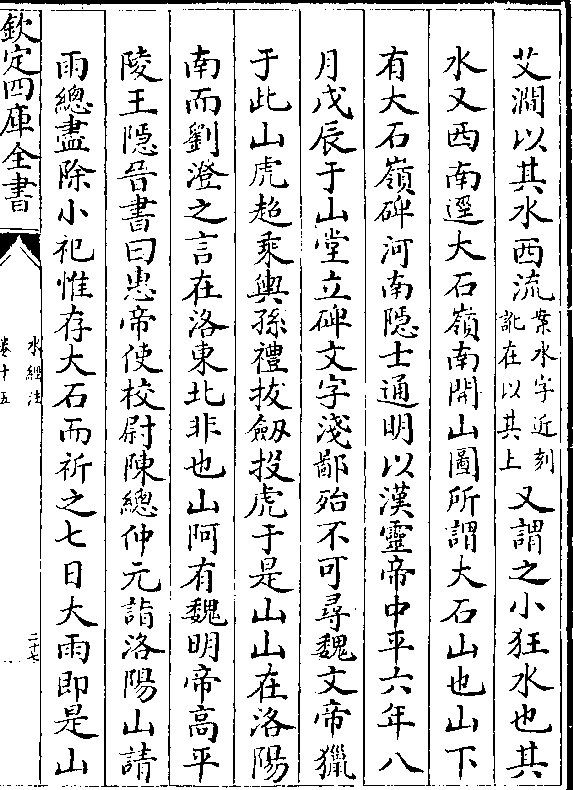 艾澗以其水西流案水字近刻訛在以其上又謂之小狂水也其
水又西南逕大石嶺南開山圖所謂大石山也山下
有大石嶺碑河南隱士通明以漢靈帝中平六年八
月戊辰于山堂立碑文字淺鄙殆不可尋魏文帝獵
于此山虎超乘輿孫禮拔劔投虎于是山山在洛陽
南而劉澄之言在洛東北非也山阿有魏明帝高平
陵王隱晉書曰惠帝使校尉陳總仲元詣洛陽山請
雨總盡除小祀惟存大石而祈之七日大雨即是山
欽定四庫全書
水經注
卷十五
二十七